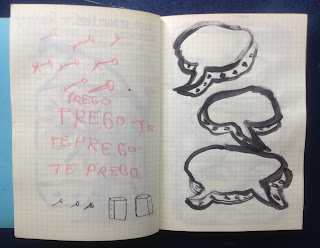 TREGO
TREGO-TE
TE PREGO
TE PREGO